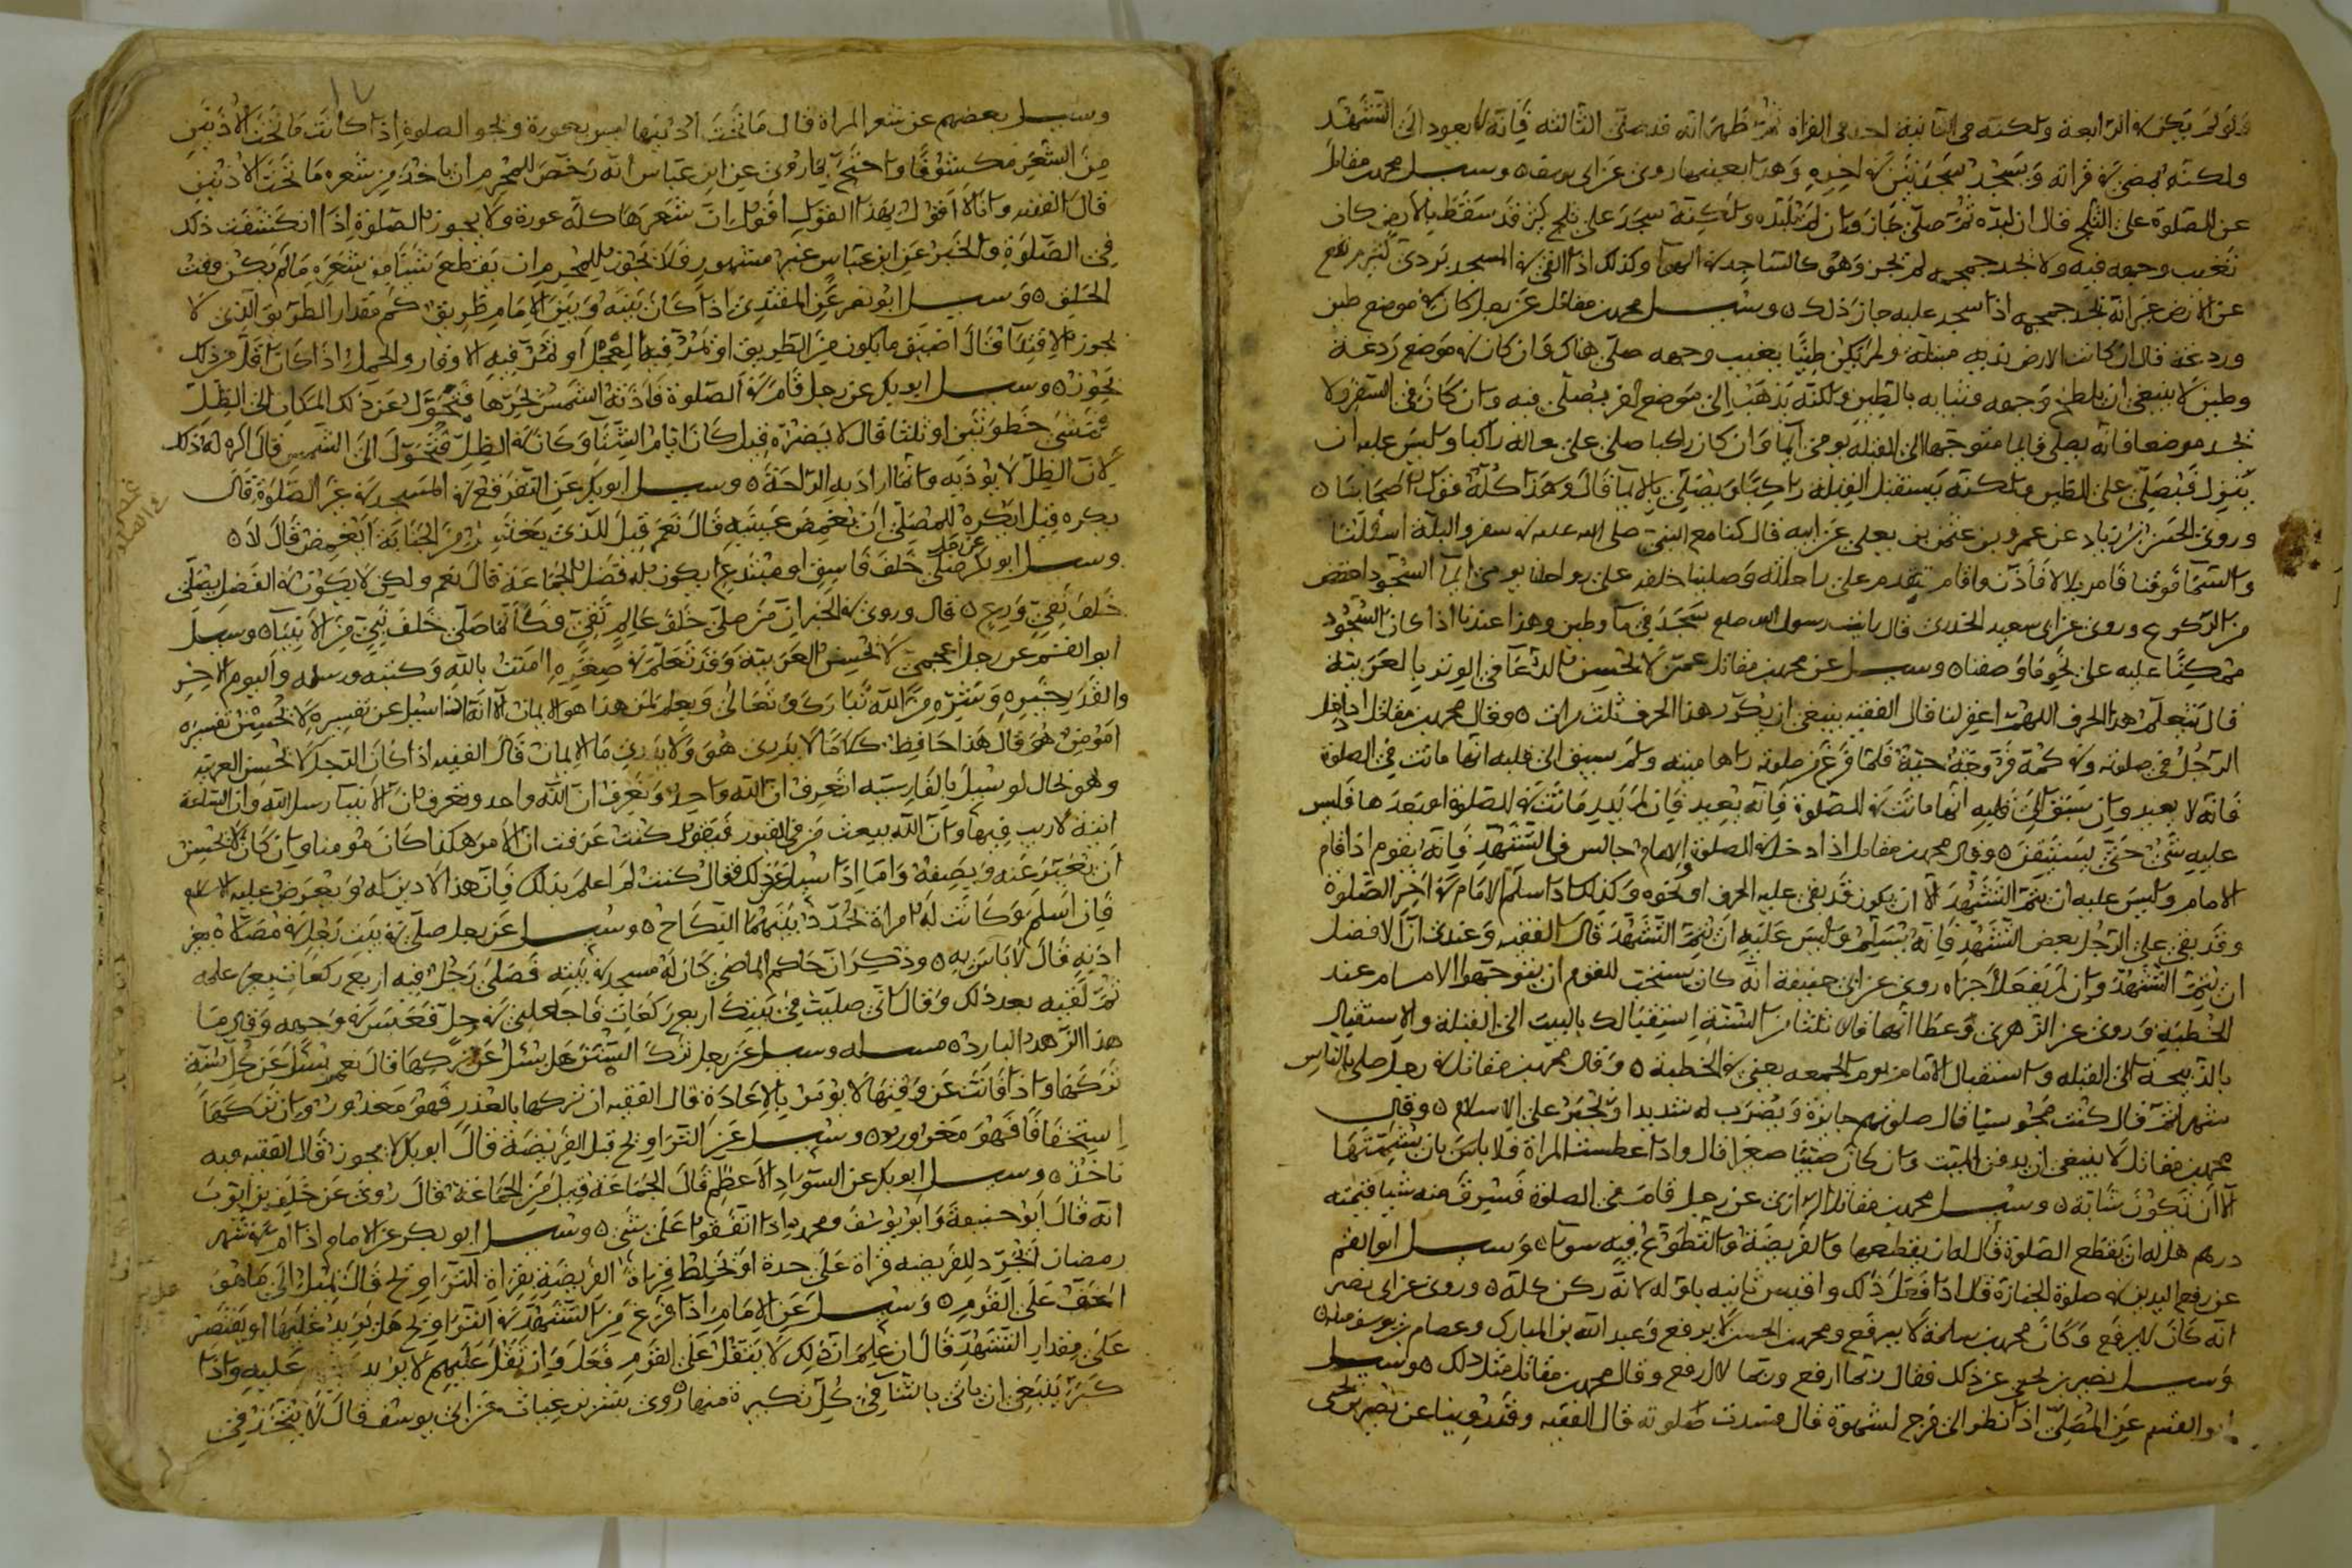 ولو لم يكن في الرابعة ولكنه في الثانية اخذ في القراة ثم ظهر انه قد صلى الثالثة فانه لا يعود الى التشهد
ولكنه يمضي في قراته ويسجد سجدتين في اخره وهذا بعينه ما روي عن ابي يوسف وسيل محمد بن مقاتل
عن الصلوة على الثلج قال ان لبده ثم صلى جاز وان لم يلبده ولكنه سجد على ثلج لين قد سقط بالارض كان
تغيب وجهه فيه ولا يجد حجمه لم يجز وهو كالساجد في الهوا وكذلك اذا القي في المسجد بردي كثير
عن الارض غير انه يجد حجمه اذا سجد عليه جاز ذلك وسيل محمد بن مقاتل عن رجل كان في موضع طين
وردغة قال ان كانت الارض ندية مبتلة ولم يكن طينا يغيب وجهه صلى هناك وان كان في موضع ردغة
وطين لا ينبغي ان يلطخ وجهه وثيابه بالطين ولكنه يذهب الى موضع اخر يصلي فيه وان كان في السفر ولا
يجد موضعا فانه يصلي قايما متوجها الى القبلة يومئ ايما وان كان راكبا صلى على حاله راكبا وليس عليه ان
ينزل فيصلي على الطين ولكنه يستقبل القبلة راكبا ويصلي بالايما قال وهذا كله قول اصحابنا
وروى الحسن بن زياد عن عمرو بن عثمن بن يعلي عن ابيه قال كنا مع النبي صلى الله عليه في سفر والبلة اسفلنا
والسما فوقنا فامر بلالا فاذن واقام تقدم على راحلته وصلينا خلفه على رواحلنا يومئ ايما السجود اخفض
من الركوع وروي عن ابي سعيد الخدري قال رايت رسول الله صلعم سجد في ما وطين وهذا عندنا اذا كان السجود
ممكنا عليه على نحو ما وصفنا وسيل عن محمد بن مقاتل عمن لا يحسن الدعا في الوتر بالعربية
قال يتعلم هذا الحرف اللهم اغفر لنا قال الفقيه ينبغي ان يكرر هذا الحرف ثلث مرات وقال محمد بن مقاتل اذا دخل
الرجل في صلوته وفي كمه فروجة حية فلما فرغ من صلوته راها ميتة ولم يسبق الى قلبه انها ماتت في الصلوة
فانه لا يعيد وان سبق الى قلبه انها ماتت في الصلوة فانه يعيد فان لم يدر ماتت في الصلوة او بعدها فليس
عليه شي حتى يستيقن وقال محمد بن مقاتل اذا دخل في الصلوة والامام جالس في التشهد فانه يقوم اذا قام
الامام وليس عليه ان يتم التشهد الا ان يكون قد بقي عليه الحرف او نحوه وكذلك اذا سلم الامام في اخر الصلوة
وقد بقي على الرجل بعض التشهد فانه يسلم وليس عليه ان يتم التشهد قال الفقيه وعندي ان الافضل
ان يتم التشهد وان لم يفعل اجزاه روي عن ابي حنيفة انه كان يستحب للقوم ان يتوجهوا الامام عند
الخطبة وروي عن الزهري وعطا انهما قالا ثلثا من السنة استقبالك بالبيت الى القبلة والاستقبال
بالذبيحة الى القبلة واستقبال الامام يوم الجمعة يعني في الخطبة وقال محمد بن مقاتل في رجل صلى بالناس
شهرا ثم قال كنت مجوسيا قال صلوتهم جايزة ويضرب له شديدا ويجبر على الاسلام وقال
محمد بن مقاتل لا ينبغي ان يدفن الميت وان كان صبيا صغيرا قال واذا عطست المراة فلا باس بان يشمتها
الا ان تكون شابة وسيل محمد بن مقاتل الرازي عن رجل قام في الصلوة فسرق منه شيا قيمته
درهم هل له ان يقطع الصلوة قال له ان يقطعها والفريضة والتطوع فيه سوا وسيل ابو القسم
عن رفع اليدين في صلوة الجنازة قال اذا فعل ذلك وافيس ثانيه باوله لانه ركن كله وروي عن ابي نصر
انه كان لا يرفع وكان محمد بن سلمة لا يرفع ومحمد بن الحسن لا يرفع وعبد الله بن المبارك وعصام بن يوسف مثله
وسيل نصير بن يحيى عن ذلك فقال ربما ارفع وربما لا ارفع وقال محمد بن مقاتل مثل ذلك وسيل
ابو القسم عن المصلي اذا نظر الى فرج لشهوة قال فسدت صلوته قال الفقيه وقد روينا عن نصير بن يحيى
وسيل بعضهم عن شعر المراة قال ما تحت اذنيها ليس بعورة وتجوز الصلوة اذا كانت ما تحت الاذنين
من الشعر مكشوفا واحتج بما روي عن ابن عباس انه رخص للمحرم ان ياخذ من شعره ما تحت الاذنين
قال الفقيه وانا لا اقول بهذا القول اقول ان شعرها كله عورة ولا يجوز الصلوة اذا انكشفت ذلك
في الصلوة والخبر عن ابن عباس غير مشهور فلا يجوز للمحرم ان يقطع شيا من شعره ما لم يكن وقت
الحلق وسيل ابو نصر عن المقتدي اذا كان بينه وبين الامام طريق كم مقدار الطريق الذي لا
يجوز الاقتدا قال اضيق ما يكون من الطريق او تمر فيها العجل او تمر فيه الاوقار والحمل اذا كان اقل من ذلك
يجوز وسيل ابو بكر عن رجل قام في الصلوة فاذته الشمس بحرها فتحول عن ذلك المكان الى الظل
تمشى خطوتين او ثلثا قال لا يضره قيل كان ايام الشتا وكان في الظل فتحول الى الشمس قال اكره له ذلك
لان الظل لا يوذيه وانما اراد به الراحة وسيل ابو بكر عن التفرقع في المسجد في غير الصلوة قال
يكره قيل ايكره للمصلي ان يغمض عينيه قال نعم قيل للذي يغتسل من الجنابة ايغمض قال لا
وسيل ابو بكر عن رجل صلى خلف فاسق او مبتدع ايكون له فضل الجماعة قال نعم ولكن لا يكون في الفضل يصلي
خلف تقي ورع قال وروي في الخبر ان من صلى خلف عالم تقي فكانما صلى خلف نبي من الانبيا وسيل
ابو القسم عن رجل اعجمي لا يحسن العربية وقد تعلم في صغره امنت بالله وكتبه ورسله واليوم الاخر
والقدر خيره وشره من الله تبارك وتعالى ويعلم بان هذا هو الايمان الا انه اذا سيل عن تفسيره لا يحسن تفسيره
امومن هو قال هذا حافظ كلاما لا يدري هو ولا يدري ما الايمان قال الفقيه اذا كان الرجل لا يحسن العربية
وهو بحال لو سيل بالفارسية اتعرف ان الله واحد وتعرف ان الله واحد وتعرف بان الانبيا رسل الله وان الساعة
اتية لا ريب فيها وان الله يبعث من في القبور فيقول كنت عرفت ان الامر هكذا كان مومنا وان كان لا يحسن
ان يعبر عنه ويصفه واما اذا سيل عن ذلك فقال كنت لم اعلم بذلك فان هذا لا دين له ويعرض عليه الاسلام
فان اسلم وكانت له امراة يجدد بينهما النكاح وسيل عن رجل صلى في بيت رجل في مصلاه بغير
اذنه قال لا باس به وذكر ان حاكم الماضي كان له مسجد في بيته فصلى رجل فيه اربع ركعات بغير علمه
ثم لقيه بعد ذلك وقال اني صليت في بيتك اربع ركعات فاجعلني في حل فعبس في وجهه وقال ما
هذا الزهد البارد مسله وسيل عن رجل ترك السنن هل يسئل عن تركها قال نعم يسئل عن كل سنة
تركها واذا فاتت عن وقتها لا يومر بالاعادة قال الفقيه ان تركها بالعذر فهو معذور وان تركها
استخفافا فهو مغرور وسيل عن التراويح قبل الفريضة قال ابو بكر لا يجوز قال الفقيه وبه
ناخذ وسيل ابو بكر عن السواد الاعظم قال الجماعة قيل من الجماعة قال روي عن خلف بن ايوب
انه قال ابو حنيفة وابو يوسف ومحمد اذا اتفقوا على شي وسيل ابو بكر عن الامام اذا ام في شهر
رمضان ايجرد للفريضه قراة على حدة او يخلط قراة الفريضة بقراة التراويح قال يميل الى ما هو
اخف على القوم وسيل عن الامام اذا فرغ من التشهد في التراويح هل يزيد عليها او يقتصر
على مقدار التشهد قال ان علم ان ذلك لا يثقل على القوم فعل وان ثقل عليهم لا يزيد عليه واذا
كبر ينبغي ان ياتي بالثنا في كل تكبيرة منها روى بشر بن غياث عن ابي يوسف قال لا يتخذ في